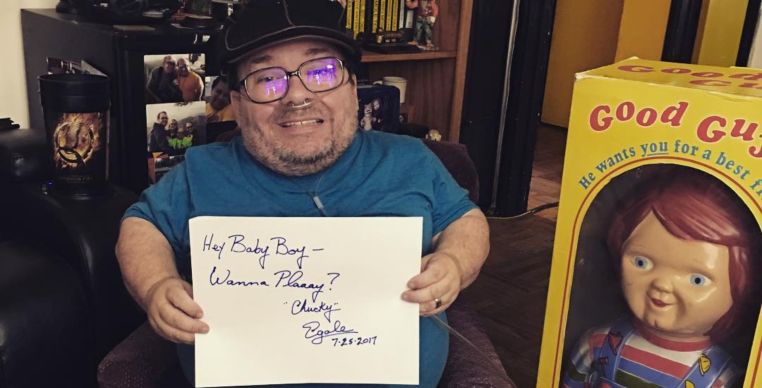 Hey Baby Boy –
Wanna Plaaay?
"Chucky"
7·25·2017
Good Guy
He wants you for a best f